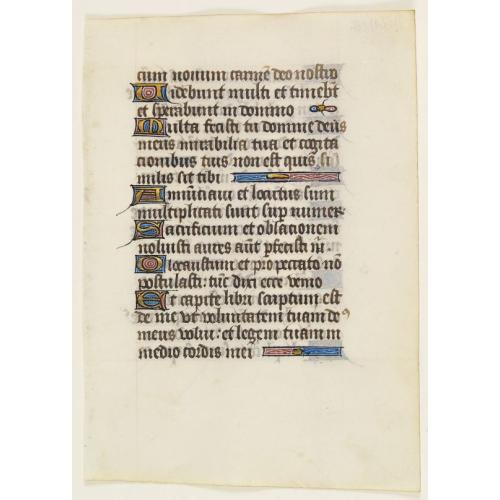 cum nouum carmē deo nostro
Uidebunt multi et timebūt
et sperabunt in domino
Multa fecisti tu domine deus
meus mirabilia tua et cogita
cionibus tuis non est quis si
milis sit tibi
Annūtiaui et locutus sum
multiplicati sunt sup numer
Sacrificium et oblacionem
noluisti aures aūt pfecisti m
Olocaustum et pro peccato nō
postulasti: tūc dixi ecce uenio
Et capite libri scriptum est
de me vt uoluntatem tuam de
meus uolui: et legem tuam in
medio cordis mei